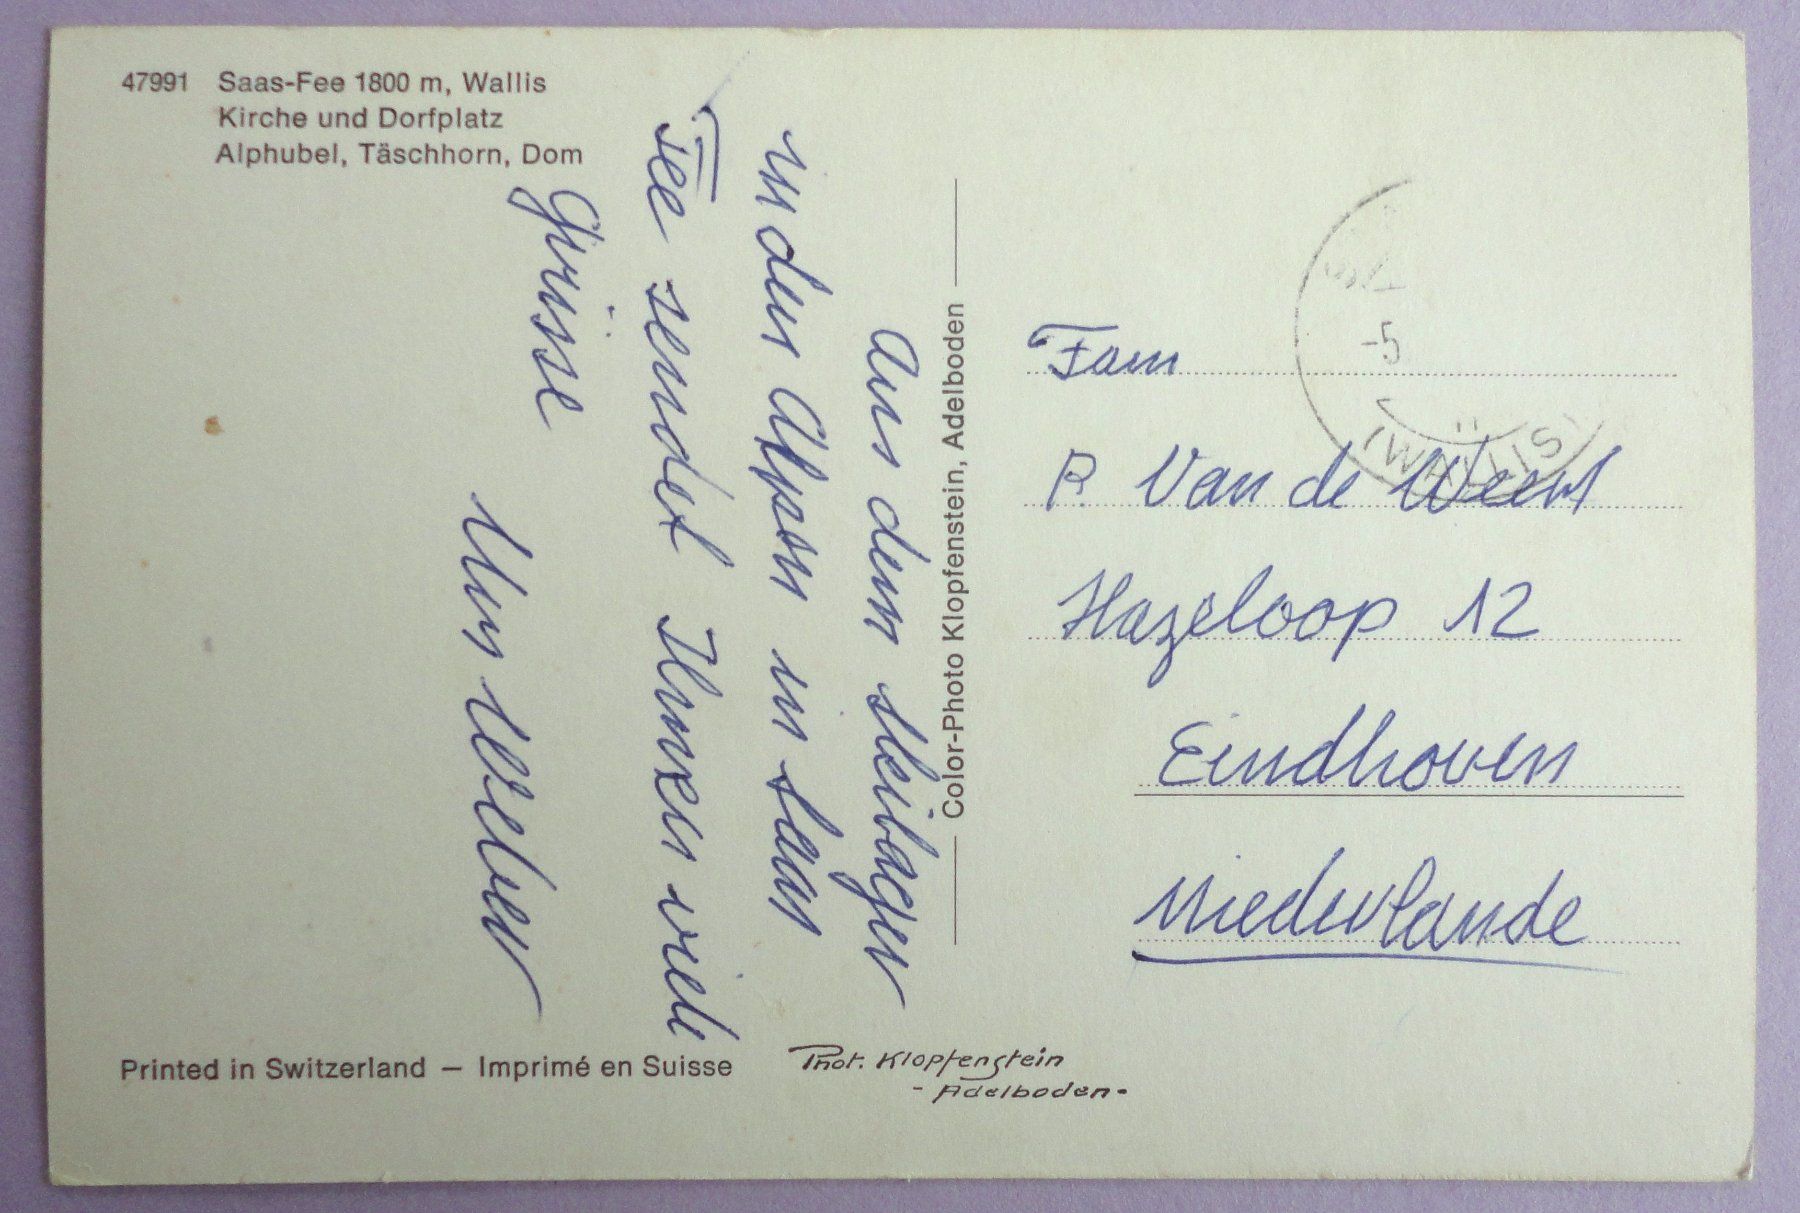 47991 Saas-Fee 1800 m, Wallis
Kirche und Dorfplatz
Alphubel, Täschhorn, Dom
Aus dem skilager
in den Alpen in Saas
Fee sendet Ihnen viele
Grüsse
Urs Weber
Color-Photo Klopfenstein, Adelboden
-5
(WALLIS)
Fam
P. Van de Weert
Hazeloop 12
Eindhoven
Niederlande
Printed in Switzerland — Imprimé en Suisse
Phot. Klopfenstein
- Adelboden -